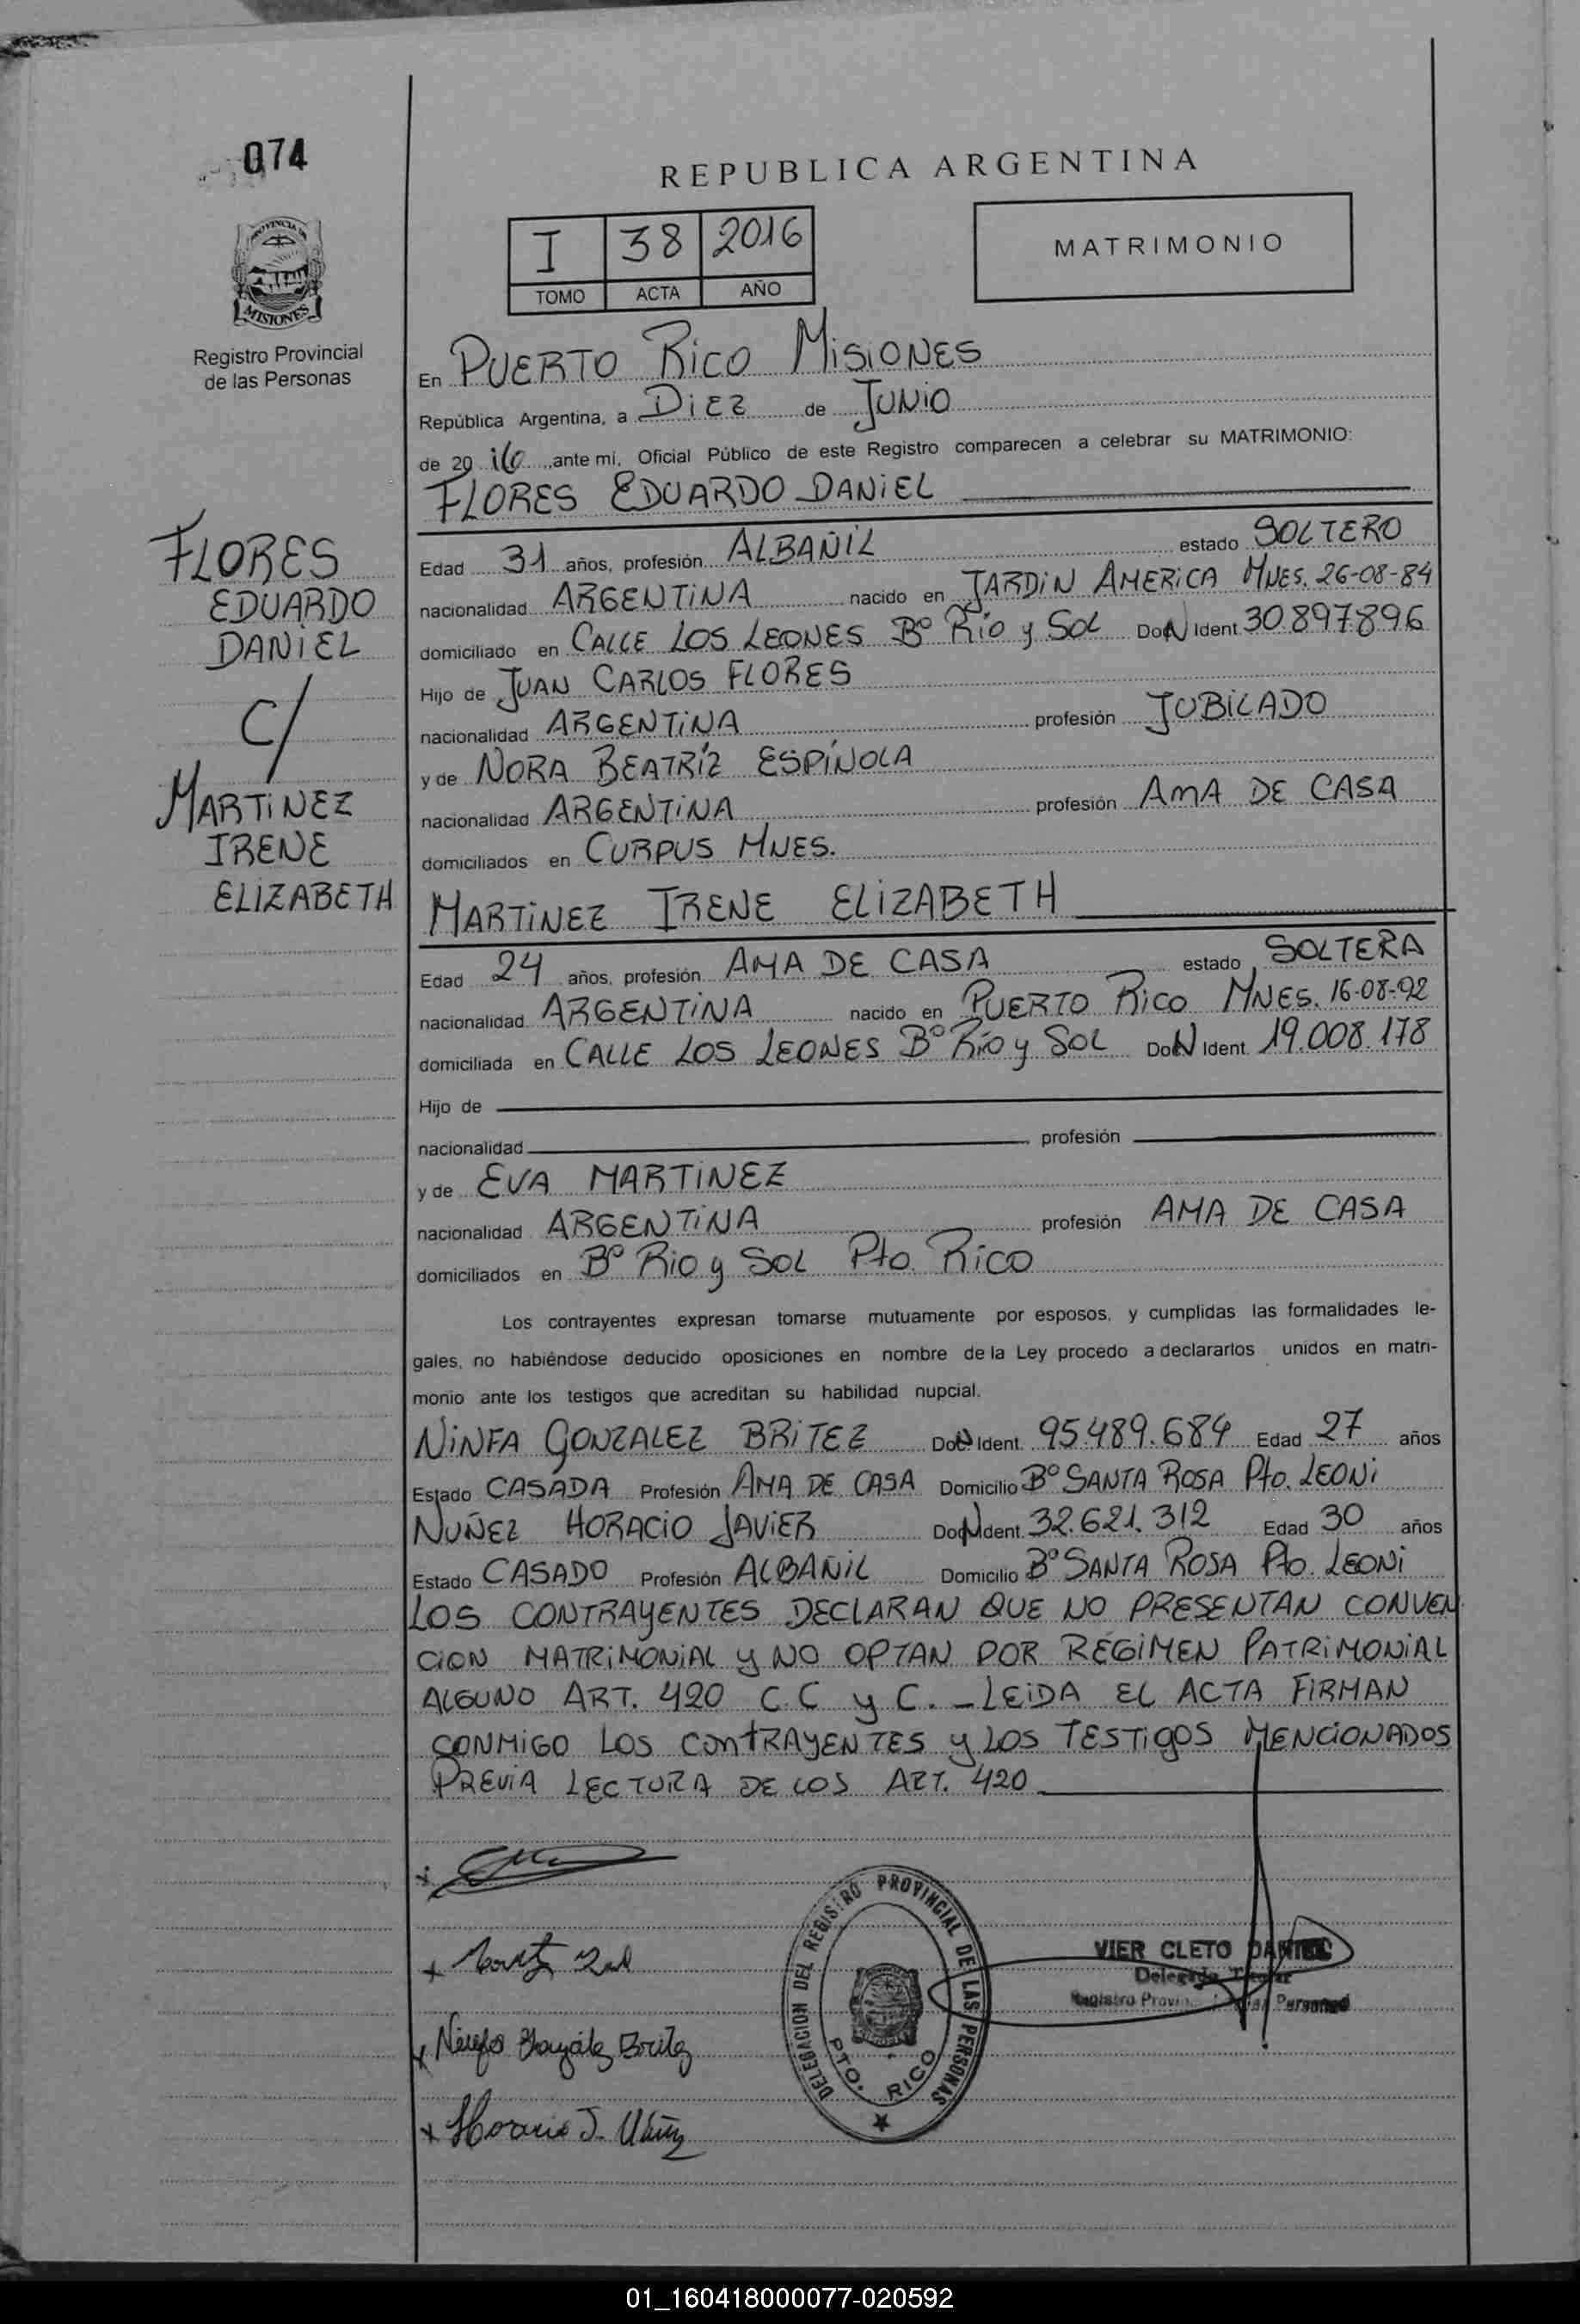 074
REPUBLICA ARGENTINA
I 38 2016
TOMO ACTA AÑO
MATRIMONIO
PROVINCIA DE
MISIONES
Registro Provincial
de las Personas
En PUERTO RICO MISIONES
República Argentina, a DIEZ de JUNIO
de 20 16 ante mi, Oficial Público de este Registro comparecen a celebrar su MATRIMONIO:
FLORES EDUARDO DANIEL
FLORES
EDUARDO
DANIEL
C/
MARTINEZ
IRENE
ELIZABETH
Edad 31 años, profesión ALBAÑIL estado SOLTERO
nacionalidad ARGENTINA nacido en JARDIN AMERICA MNES. 26-08-84
domiciliado en CALLE LOS LEONES Bº RÍO y SOL Ident 30.897.896
Hijo de JUAN CARLOS FLORES
nacionalidad ARGENTINA profesión JUBILADO
y de NORA BEATRÍZ ESPÍNOLA
nacionalidad ARGENTINA profesión AMA DE CASA
domiciliados en CURPUS MNES.
MARTINEZ IRENE ELIZABETH
Edad 24 años, profesión AMA DE CASA estado SOLTERA
nacionalidad ARGENTINA nacido en PUERTO RICO MNES. 16-08-92
domiciliada en CALLE LOS LEONES Bº Río y SOL Ident. 19.008.178
Hijo de
nacionalidad profesión
y de EVA MARTINEZ
nacionalidad ARGENTINA profesión AMA DE CASA
domiciliados en Bº Rio y SOL Pto. RICO
Los contrayentes expresan tomarse mutuamente por esposos, y cumplidas las formalidades le-
gales, no habiéndose deducido oposiciones en nombre de la Ley procedo a declararlos unidos en matri-
monio ante los testigos que acreditan su habilidad nupcial.
NINFA GONZALEZ BRITEZ Ident. 95.489.684 Edad 27 años
Estado CASADA Profesión AMA DE CASA Domicilio Bº SANTA ROSA Pto. LEONI
NUÑEZ HORACIO JAVIER Ident. 32.621.312 Edad 30 años
Estado CASADO Profesión ALBAÑIL Domicilio Bº SANTA ROSA Pto. LEONI
LOS CONTRAYENTES DECLARAN QUE NO PRESENTAN CONVEN
CION MATRIMONIAL y NO OPTAN POR RÉGIMEN PATRIMONIAL
ALGUNO ART. 420 C.C y C. - LEIDA EL ACTA FIRMAN
CONMIGO LOS CONTRAYENTES y LOS TESTIGOS MENCIONADOS
PREVIA LECTURA DE LOS ART. 420
DELEGACION DEL REGISTRO PROVINCIAL DE LAS PERSONAS
PTO. RICO
VIER CLETO DANIEL
Delegado Titular
Registro Personas
Ninfa González Britez
Horacio J. Núñez
01_160418000077-020592